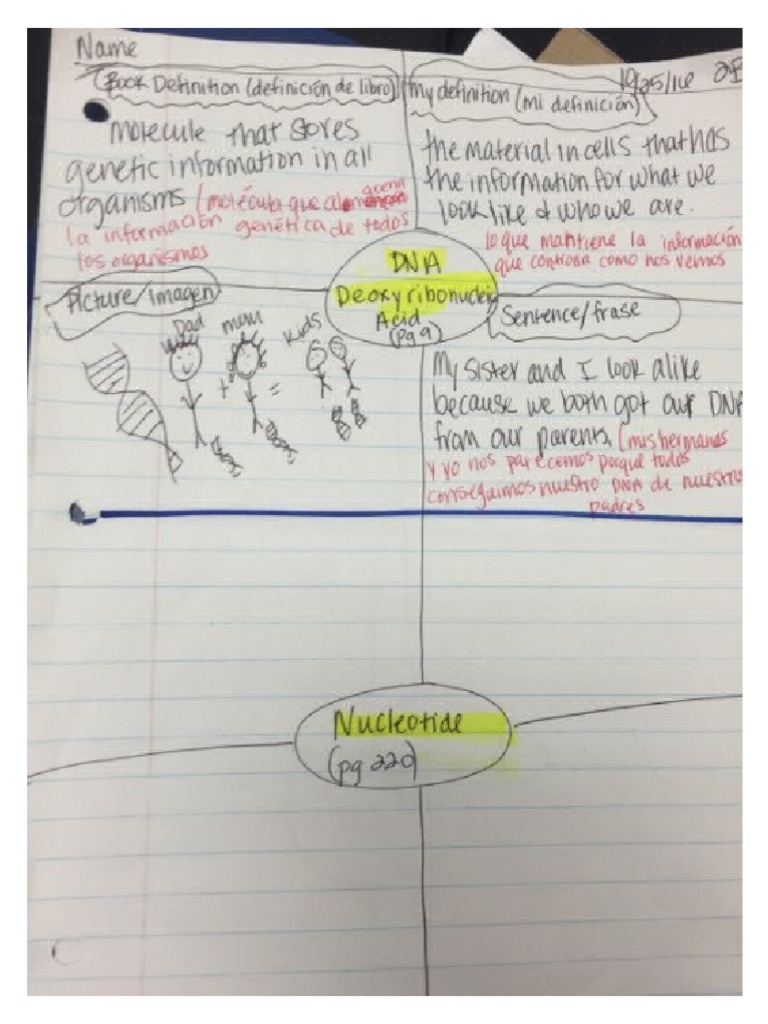 Name
10/25/16
Book Definition (definición de libro)
molecule that stores
genetic information in all
organisms (molécula que almacena
la información genética de todos
los organismos
my definition (mi definición)
the material in cells that has
the information for what we
look like & who we are.
lo que mantiene la información
que controla como nos vemos
DNA
Deoxyribonucleic
Acid
(pg 9)
Picture/imagen
Dad mom kids
+ =
Sentence/frase
My sister and I look alike
because we both got our DNA
from our parents. (mis hermanas
y yo nos parecemos porque todos
conseguimos nuestro DNA de nuestros
padres
Nucleotide
(pg 220)